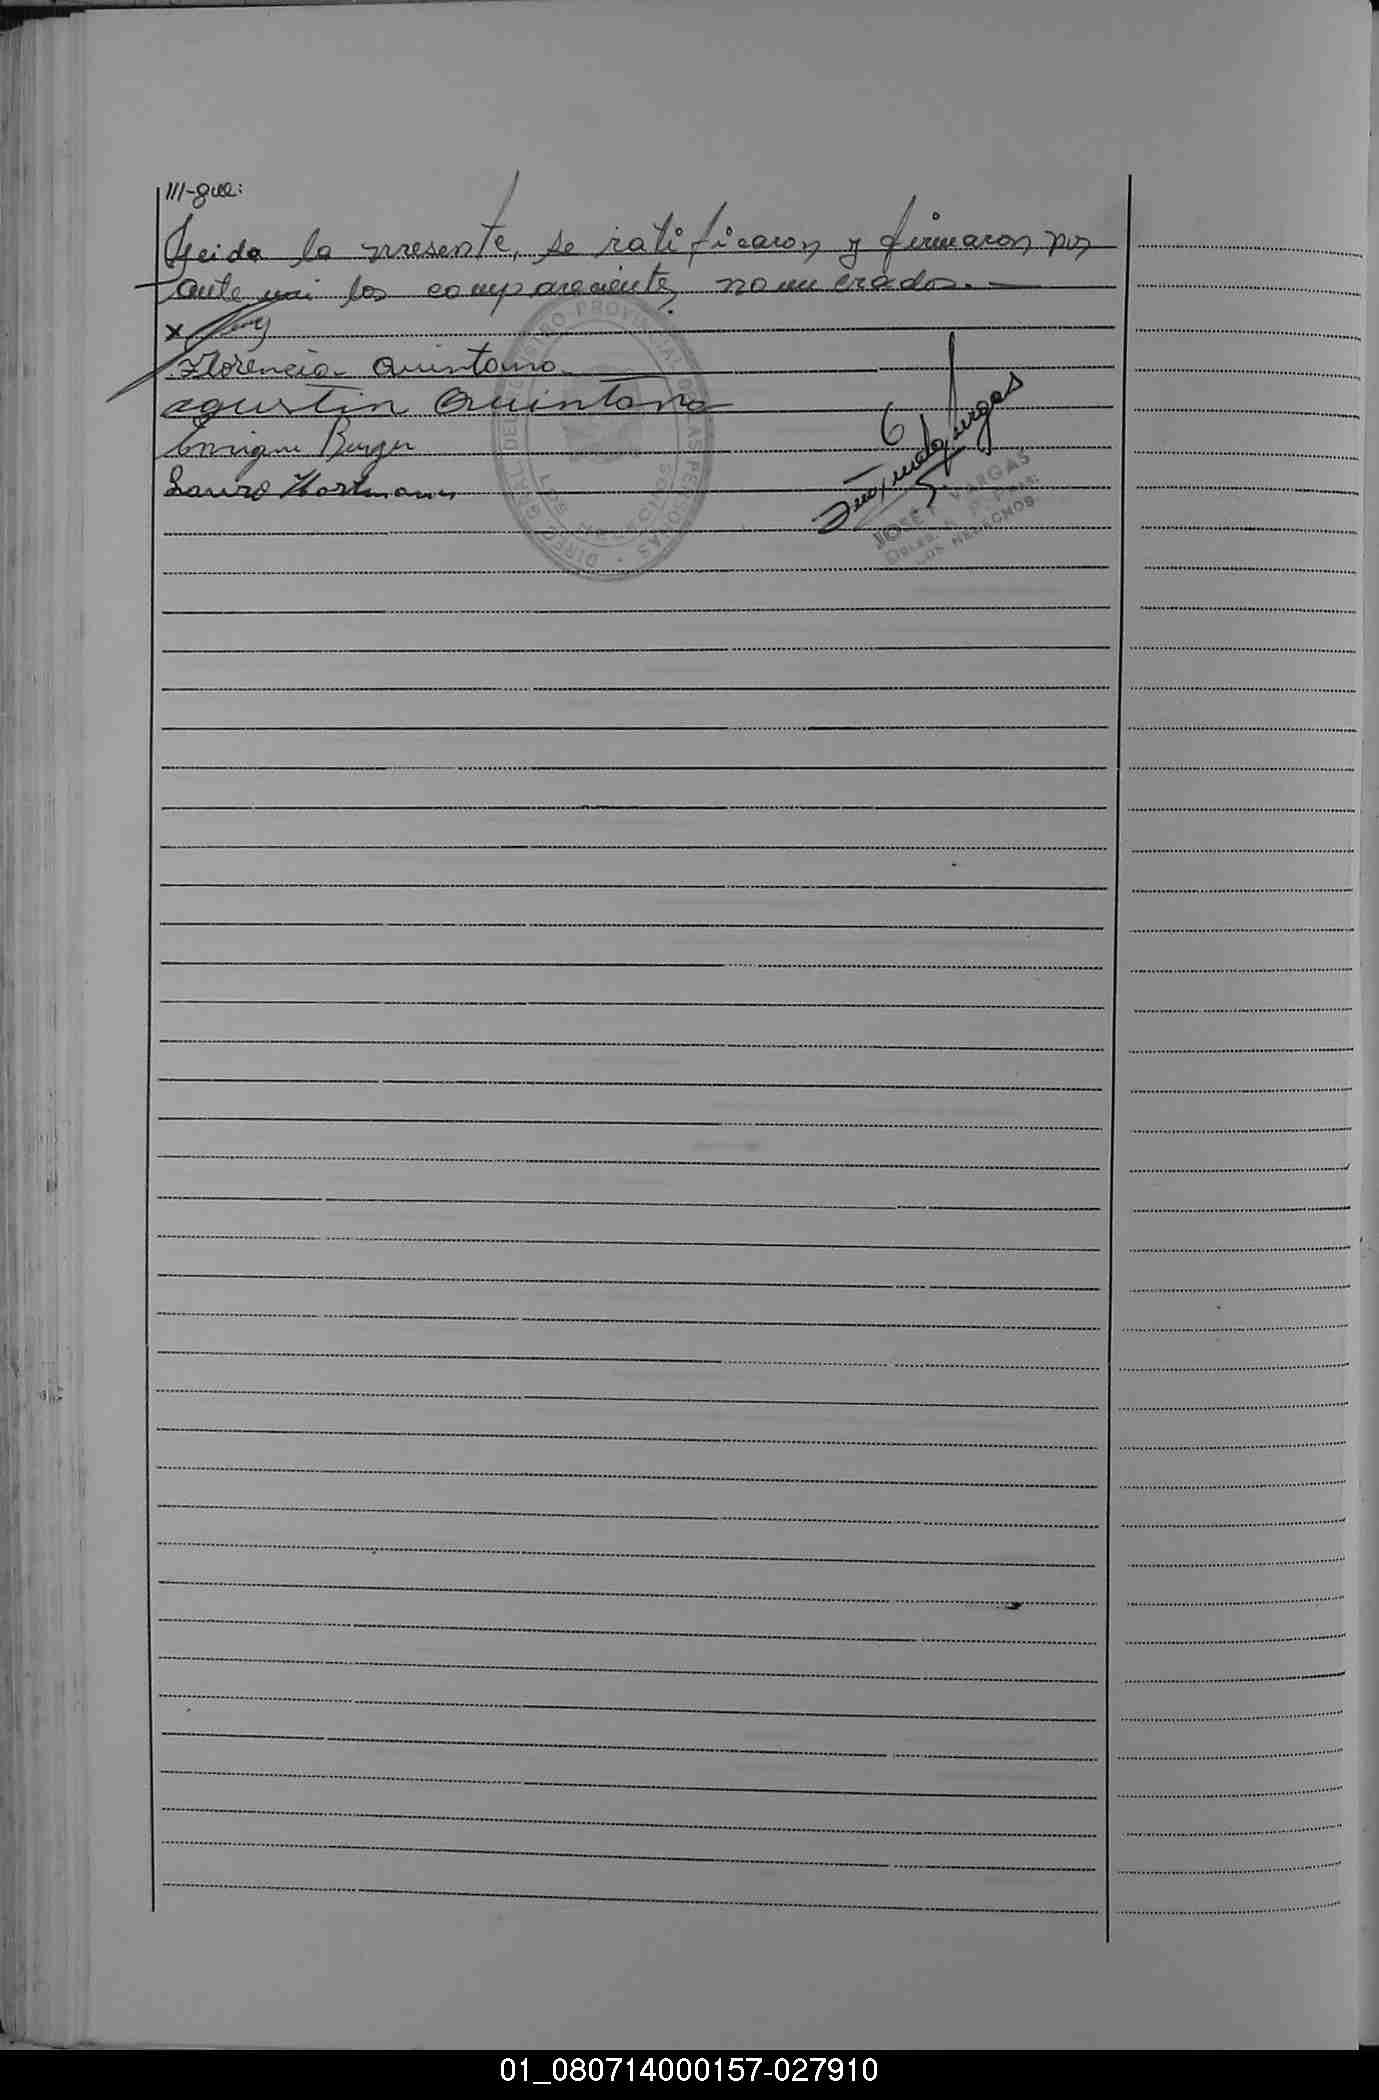 ///-gue:
Leida la presente, se ratificaron y firmaron por
ante mi los comparecientes nomencrados.
x
Florencia Quintana
agustin Quintana
Enrique Berger
Lauro Hartmann
DIREC. GRAL. DEL REGISTRO PROVINCIAL DE LAS PERSONAS
LOS HELECHOS
JOSE F. VARGAS
LOS HELECHOS
01_080714000157-027910